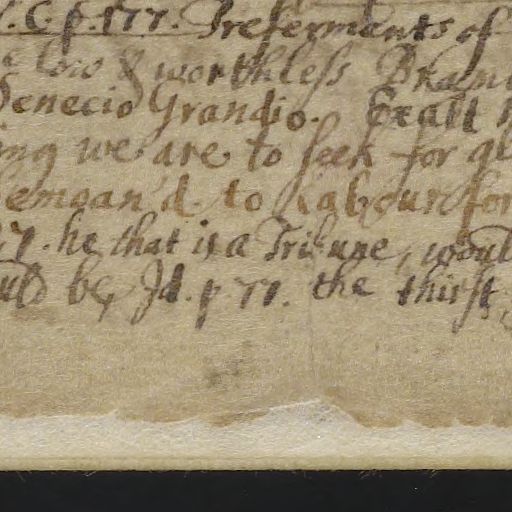 .C. p. 177. Preferments of
low & worthless
Senecio Grandio. Exalt
ing we are to seek for gl
Bemoan'd to Labour for
27. he that is a Tribune, woul
ould be, Id. p 71. the thirst